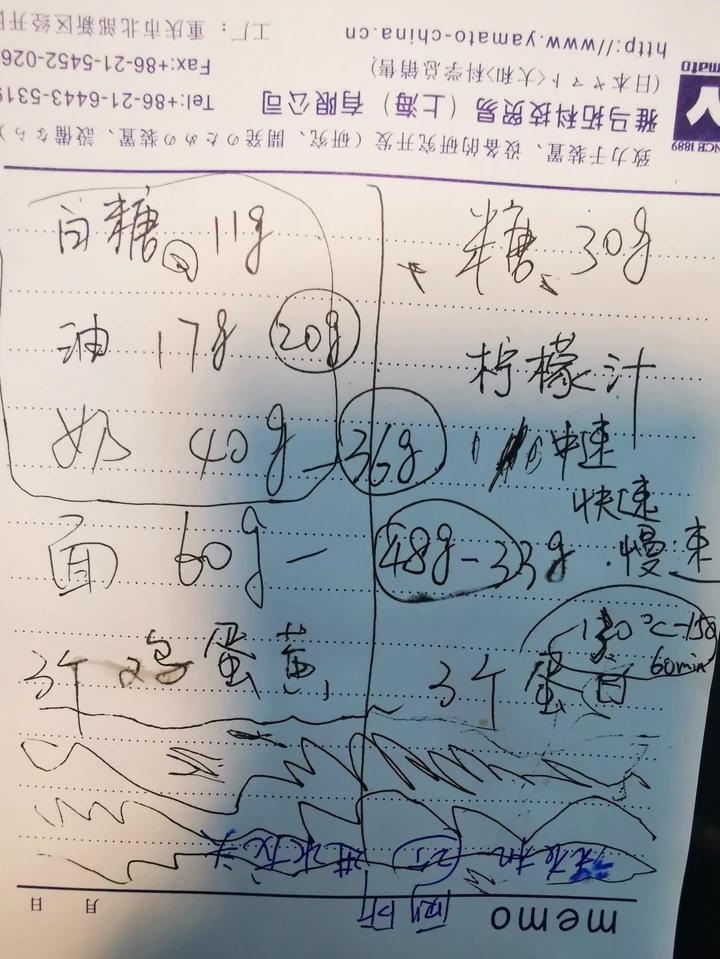 工厂：重庆市北部新区经开
http://www.yamato-china.cn
Fax:+86-21-5452-026
(日本ヤマト<大和>科学总销售)
Tel:+86-21-6443-5319
雅马拓科技贸易（上海）有限公司
致力于装置、设备的研究开发（研究、開発のための装置、設備なら）
NCE 1889
白糖 11g
糖 30g
油 17g 20g
柠檬汁
奶 40g - 36g
中速
快速
面 60g - 48g - 33g
慢速
60min
3个鸡蛋黄
3个蛋白
进水龙头
厕所
memo
月 日